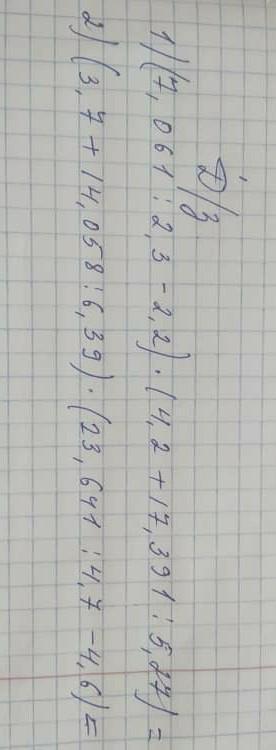 Д/з
1) (7,061 : 2,3 - 2,2) · (4,2 + 17,391 : 5,27) =
2) (3,7 + 14,058 : 6,39) · (23,641 : 4,7 - 4,6) =